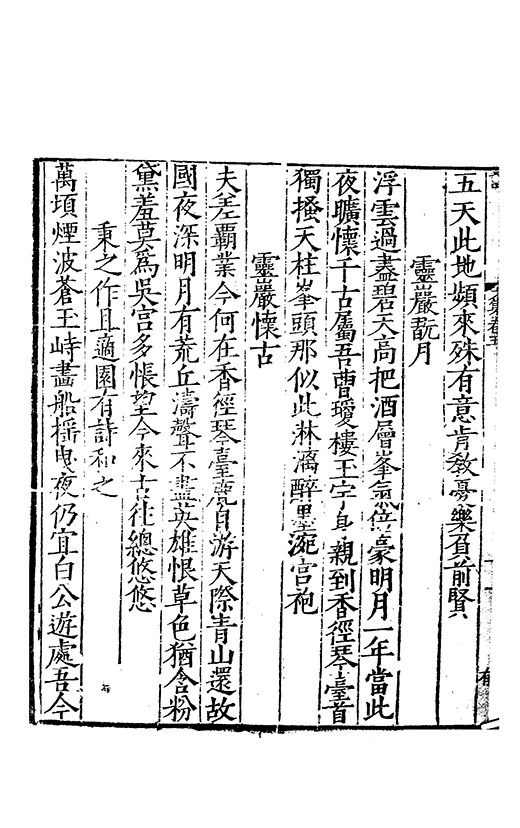 五天此地頻來殊有意肯敎憂樂負前賢
靈巖翫月
浮雲過盡碧天高把酒層峯氣倍豪明月一年當此
夜曠懷千古屬吾曹瓊樓玉宇身親到香徑琴臺首
獨搔天柱峯頭那似此淋漓醉墨涴宮袍
靈巖懷古
夫差霸業今何在香徑琴臺麂自游天際青山還故
國夜深明月有荒丘濤聲不盡英雄恨草色猶含粉
黛羞莫爲吳宮多悵望今來古往總悠悠
秉之作且適園有詩和之
萬頃煙波蒼玉峙畫船搖曳夜仍宜白公遊處吾今